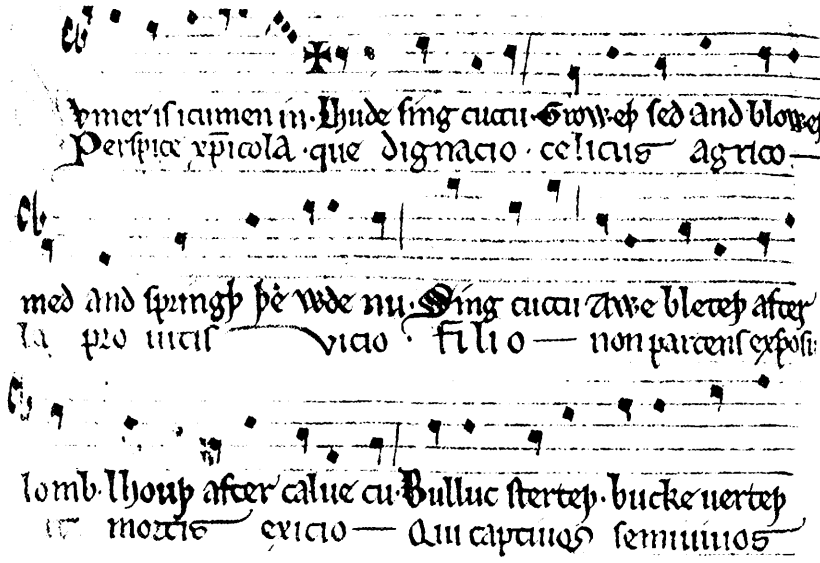 ymer is icumen in. Lhude sing cuccu. Groweþ sed and bloweþ
Perspice xp̅icola. que dignacio. celicus agrico
med and springþ þe wde nu. Sing cuccu Awe bleteþ after
la pro uitis vicio. filio non parcens exposu
lomb. lhouþ after calue cu. Bulluc sterteþ. bucke uerteþ
it mortis exicio Qui captiuos semiuiuos